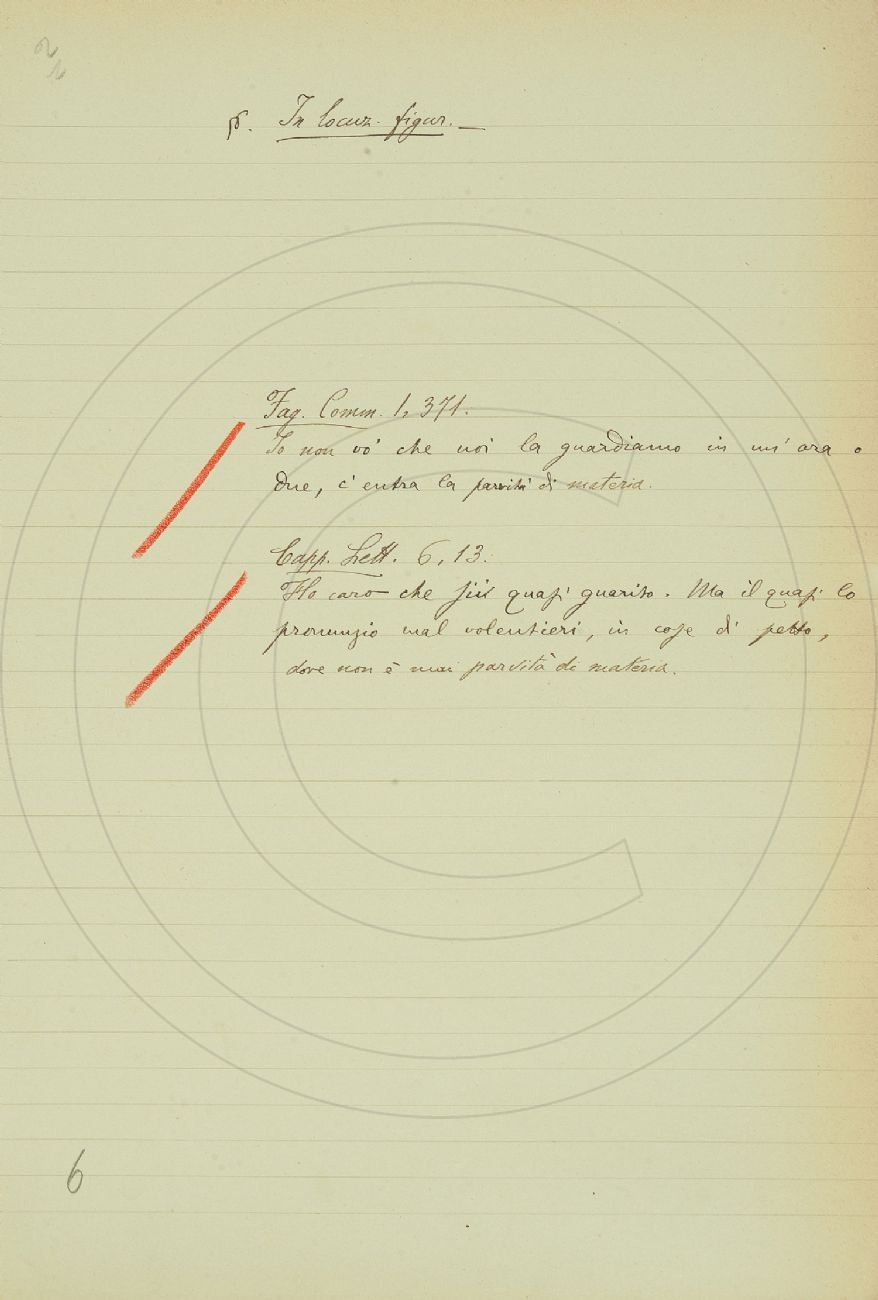 §. In locuz. figur. —
Fag. Comm. 1, 371.
Io non vo' che noi la guardiamo in un' ora o
due, c'entra la parvità di materia.
Capp. Lett. 6, 13.
Ho caro che sii quasi guarito. Ma il quasi lo
pronunzio mal volentieri, in cose di petto,
dove non è mai parvità di materia.
6